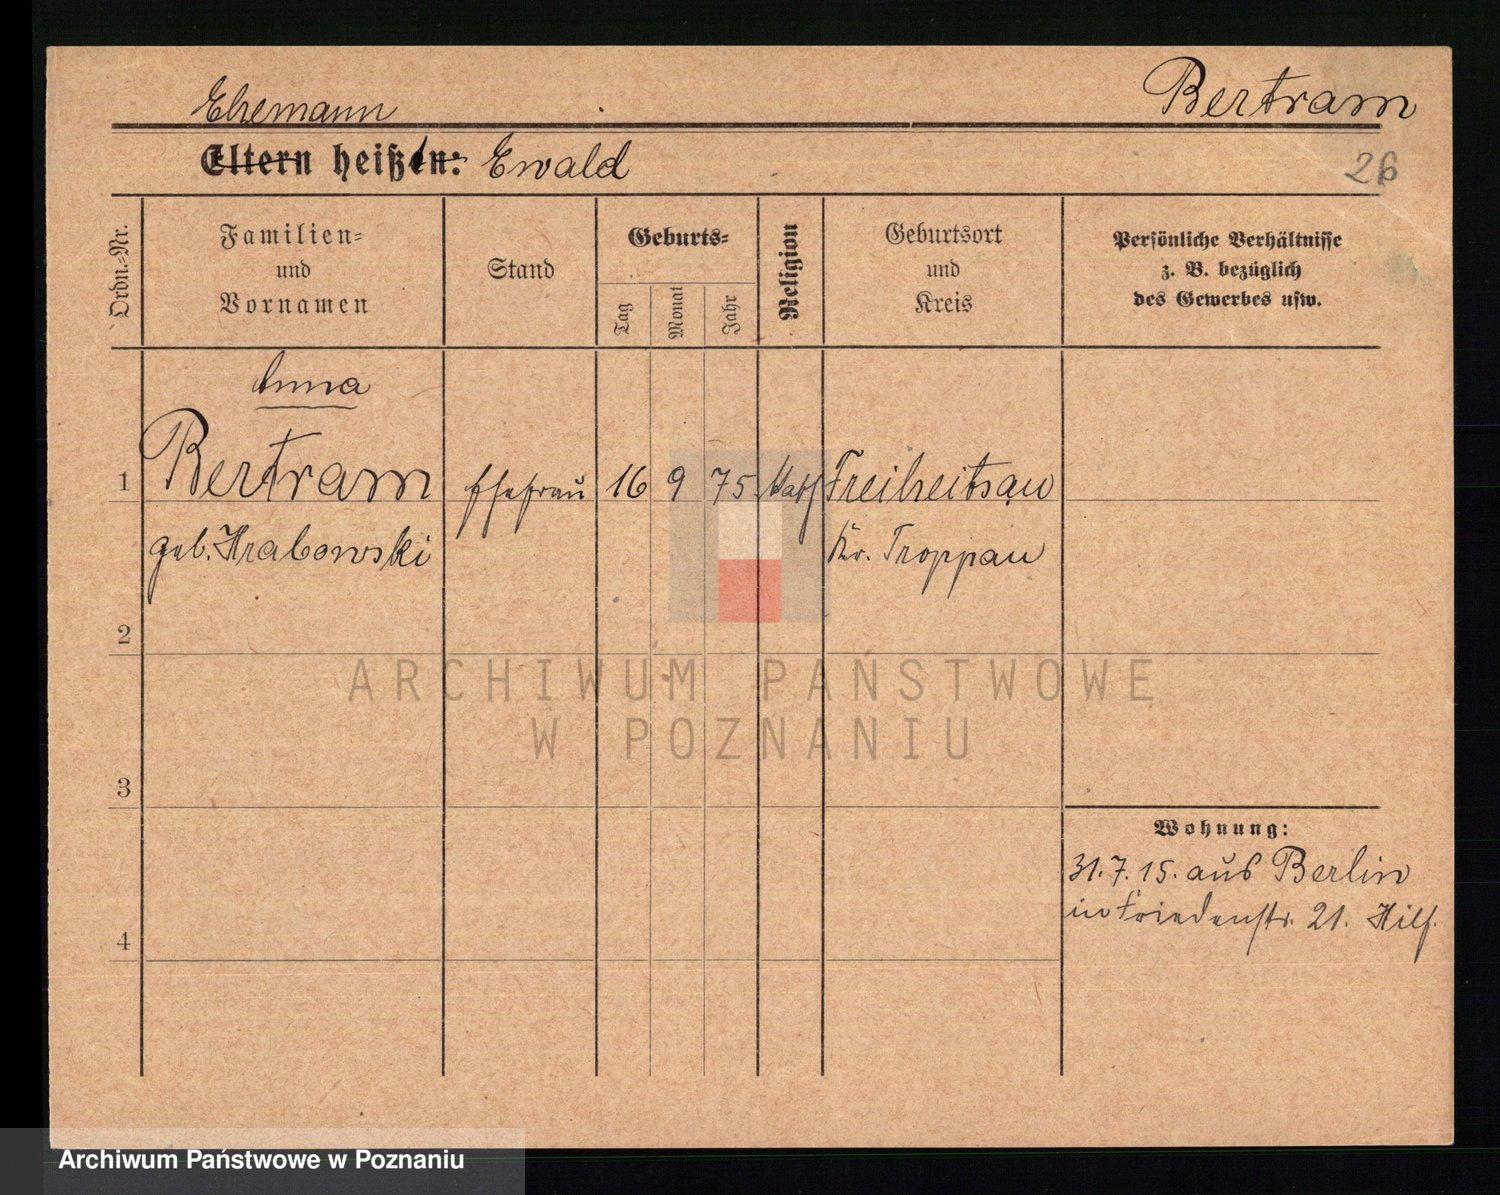 Ehemann
Bertram
Eltern heißen: Ewald
26
Ordn.-Nr.
Familien-
und
Vornamen
Stand
Geburts-
Tag
Monat
Jahr
Religion
Geburtsort
und
Kreis
Persönliche Verhältnisse
z. B. bezüglich
des Gewerbes usw.
Anna
1 Bertram Ehefrau 16 9 75 Kath Freiheitsau
geb. Hrabowski Kr. Troppau
2
3
Wohnung:
31.7.15. aus Berlin
in Friedenstr. 21. Hilf.
4
ARCHIWUM PAŃSTWOWE
W POZNANIU
Archiwum Państwowe w Poznaniu